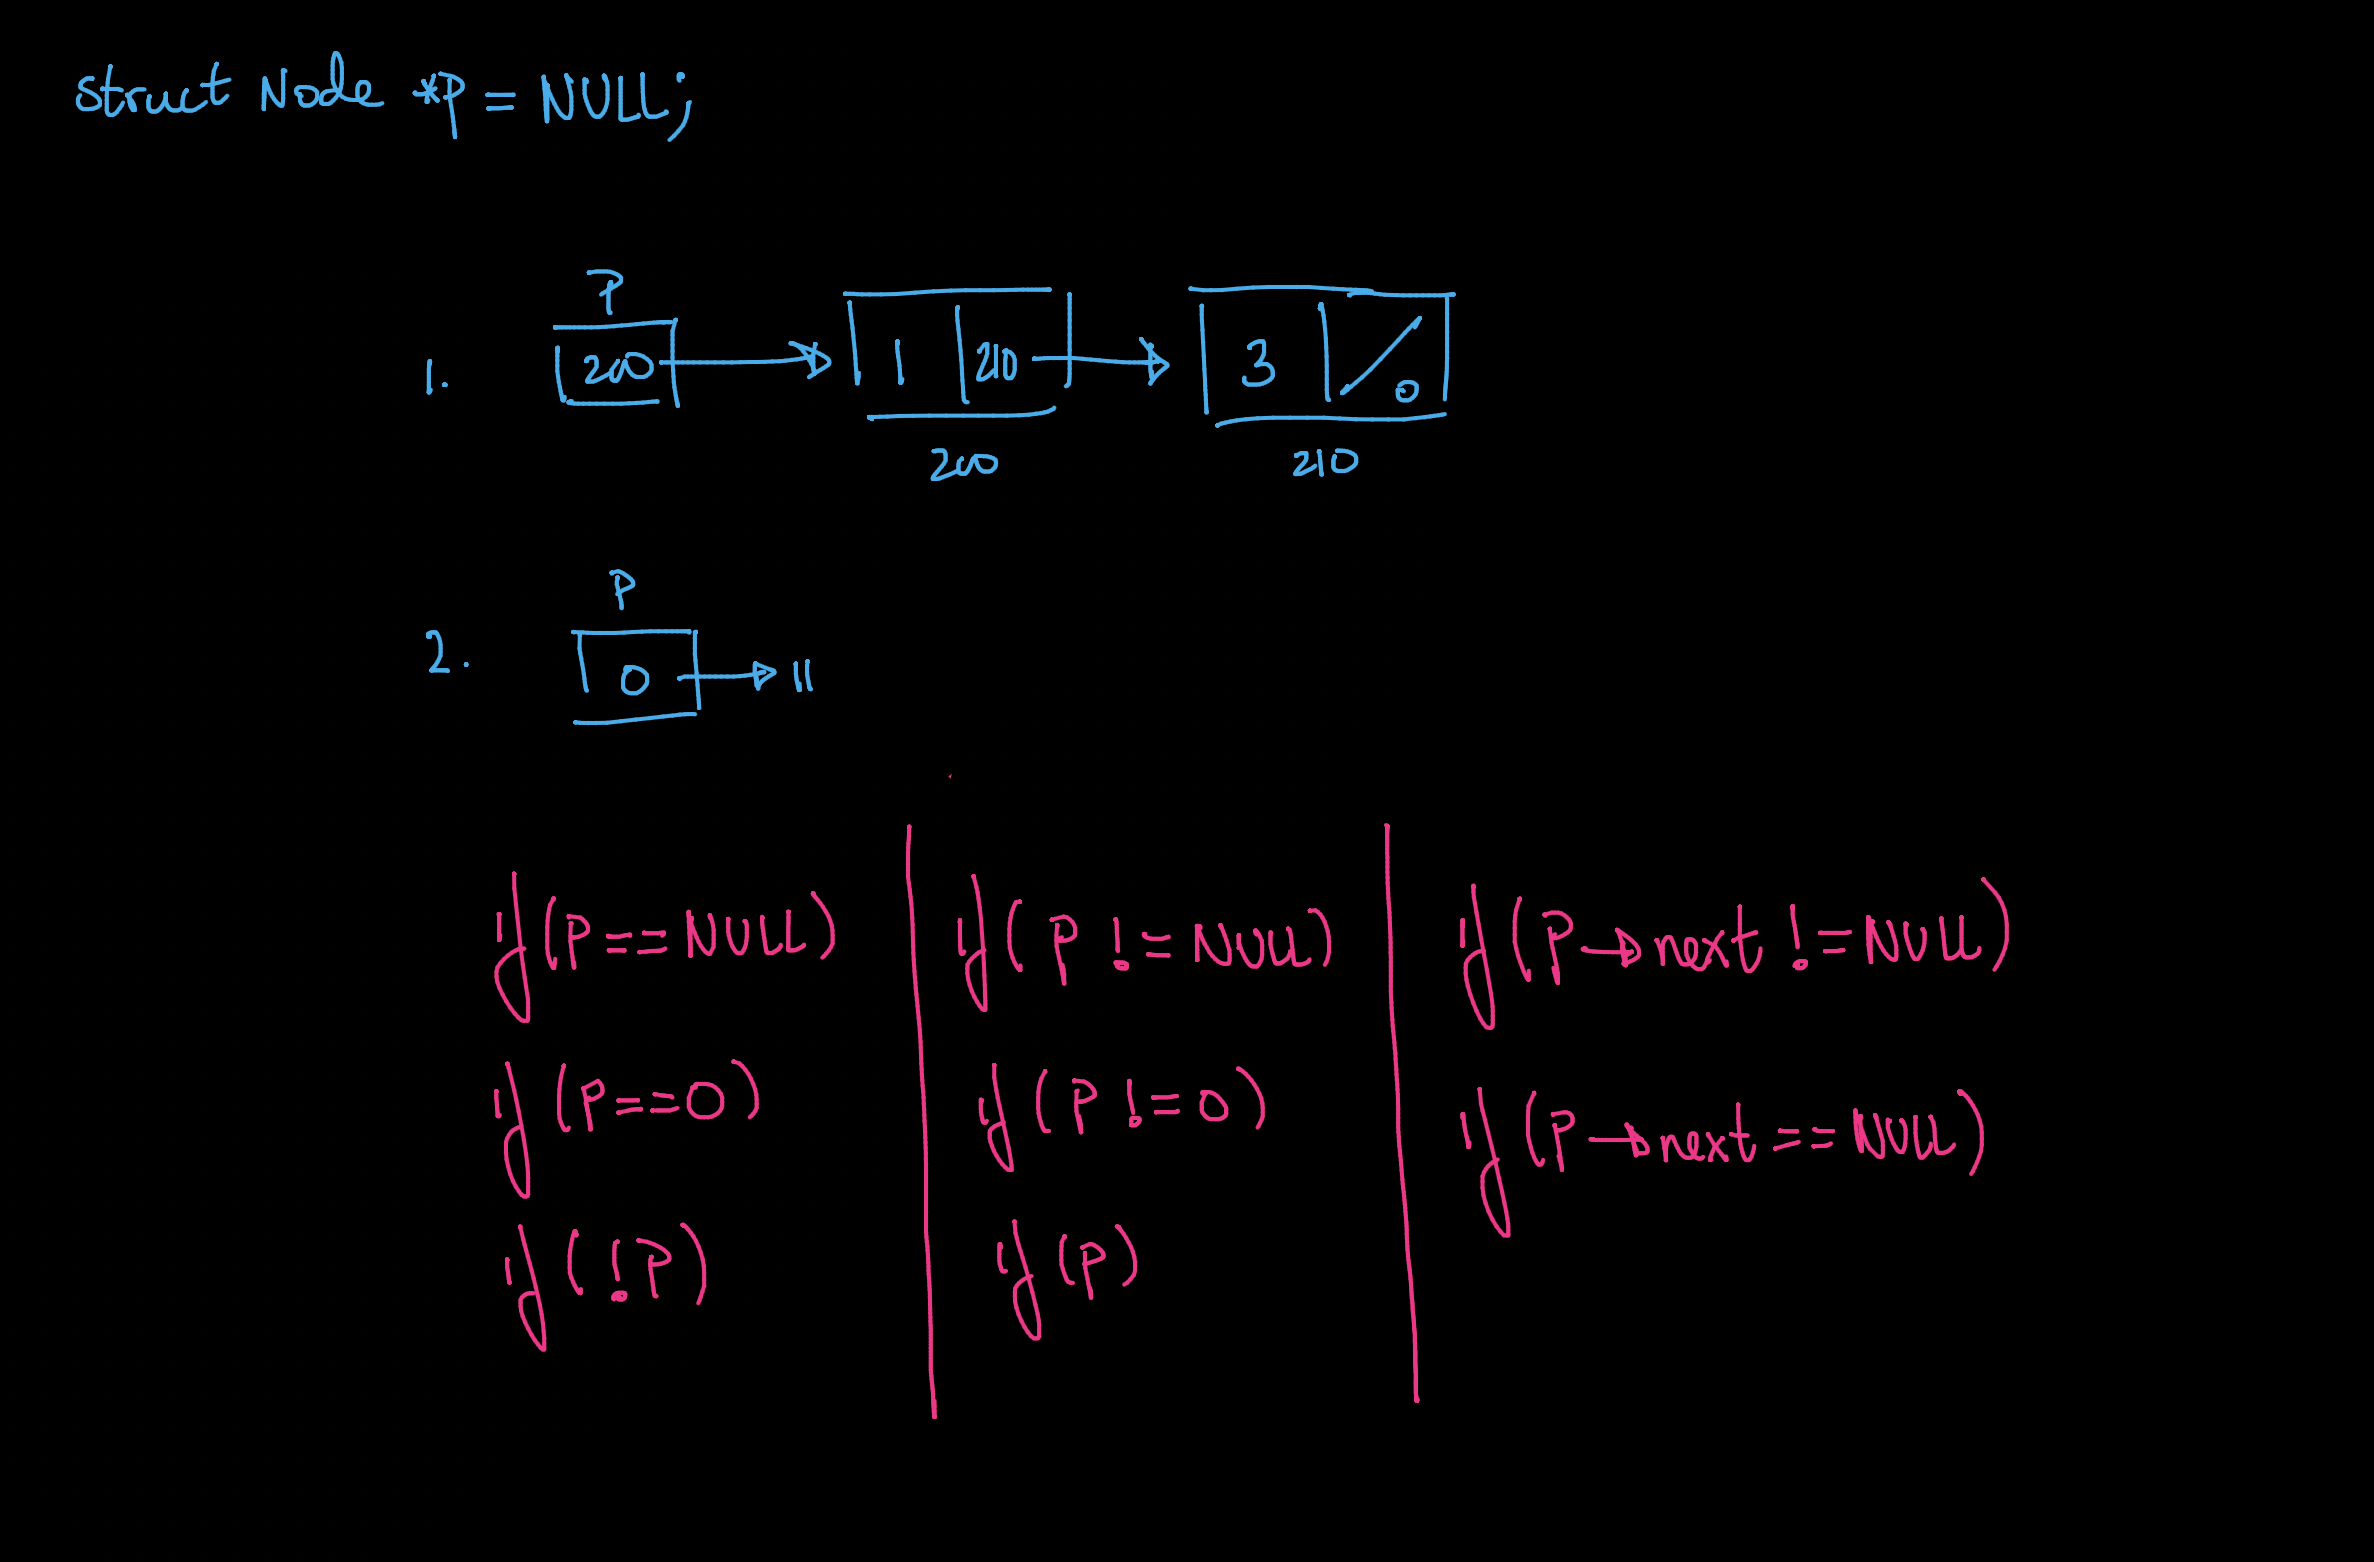 struct Node *P = NULL;
P
1. 200 1 210 3 0
200 210
P
2. 0
if (P == NULL) if (P != NULL) if (P→next != NULL)
if (P == 0) if (P != 0) if (P→next == NULL)
if (!P) if (P)